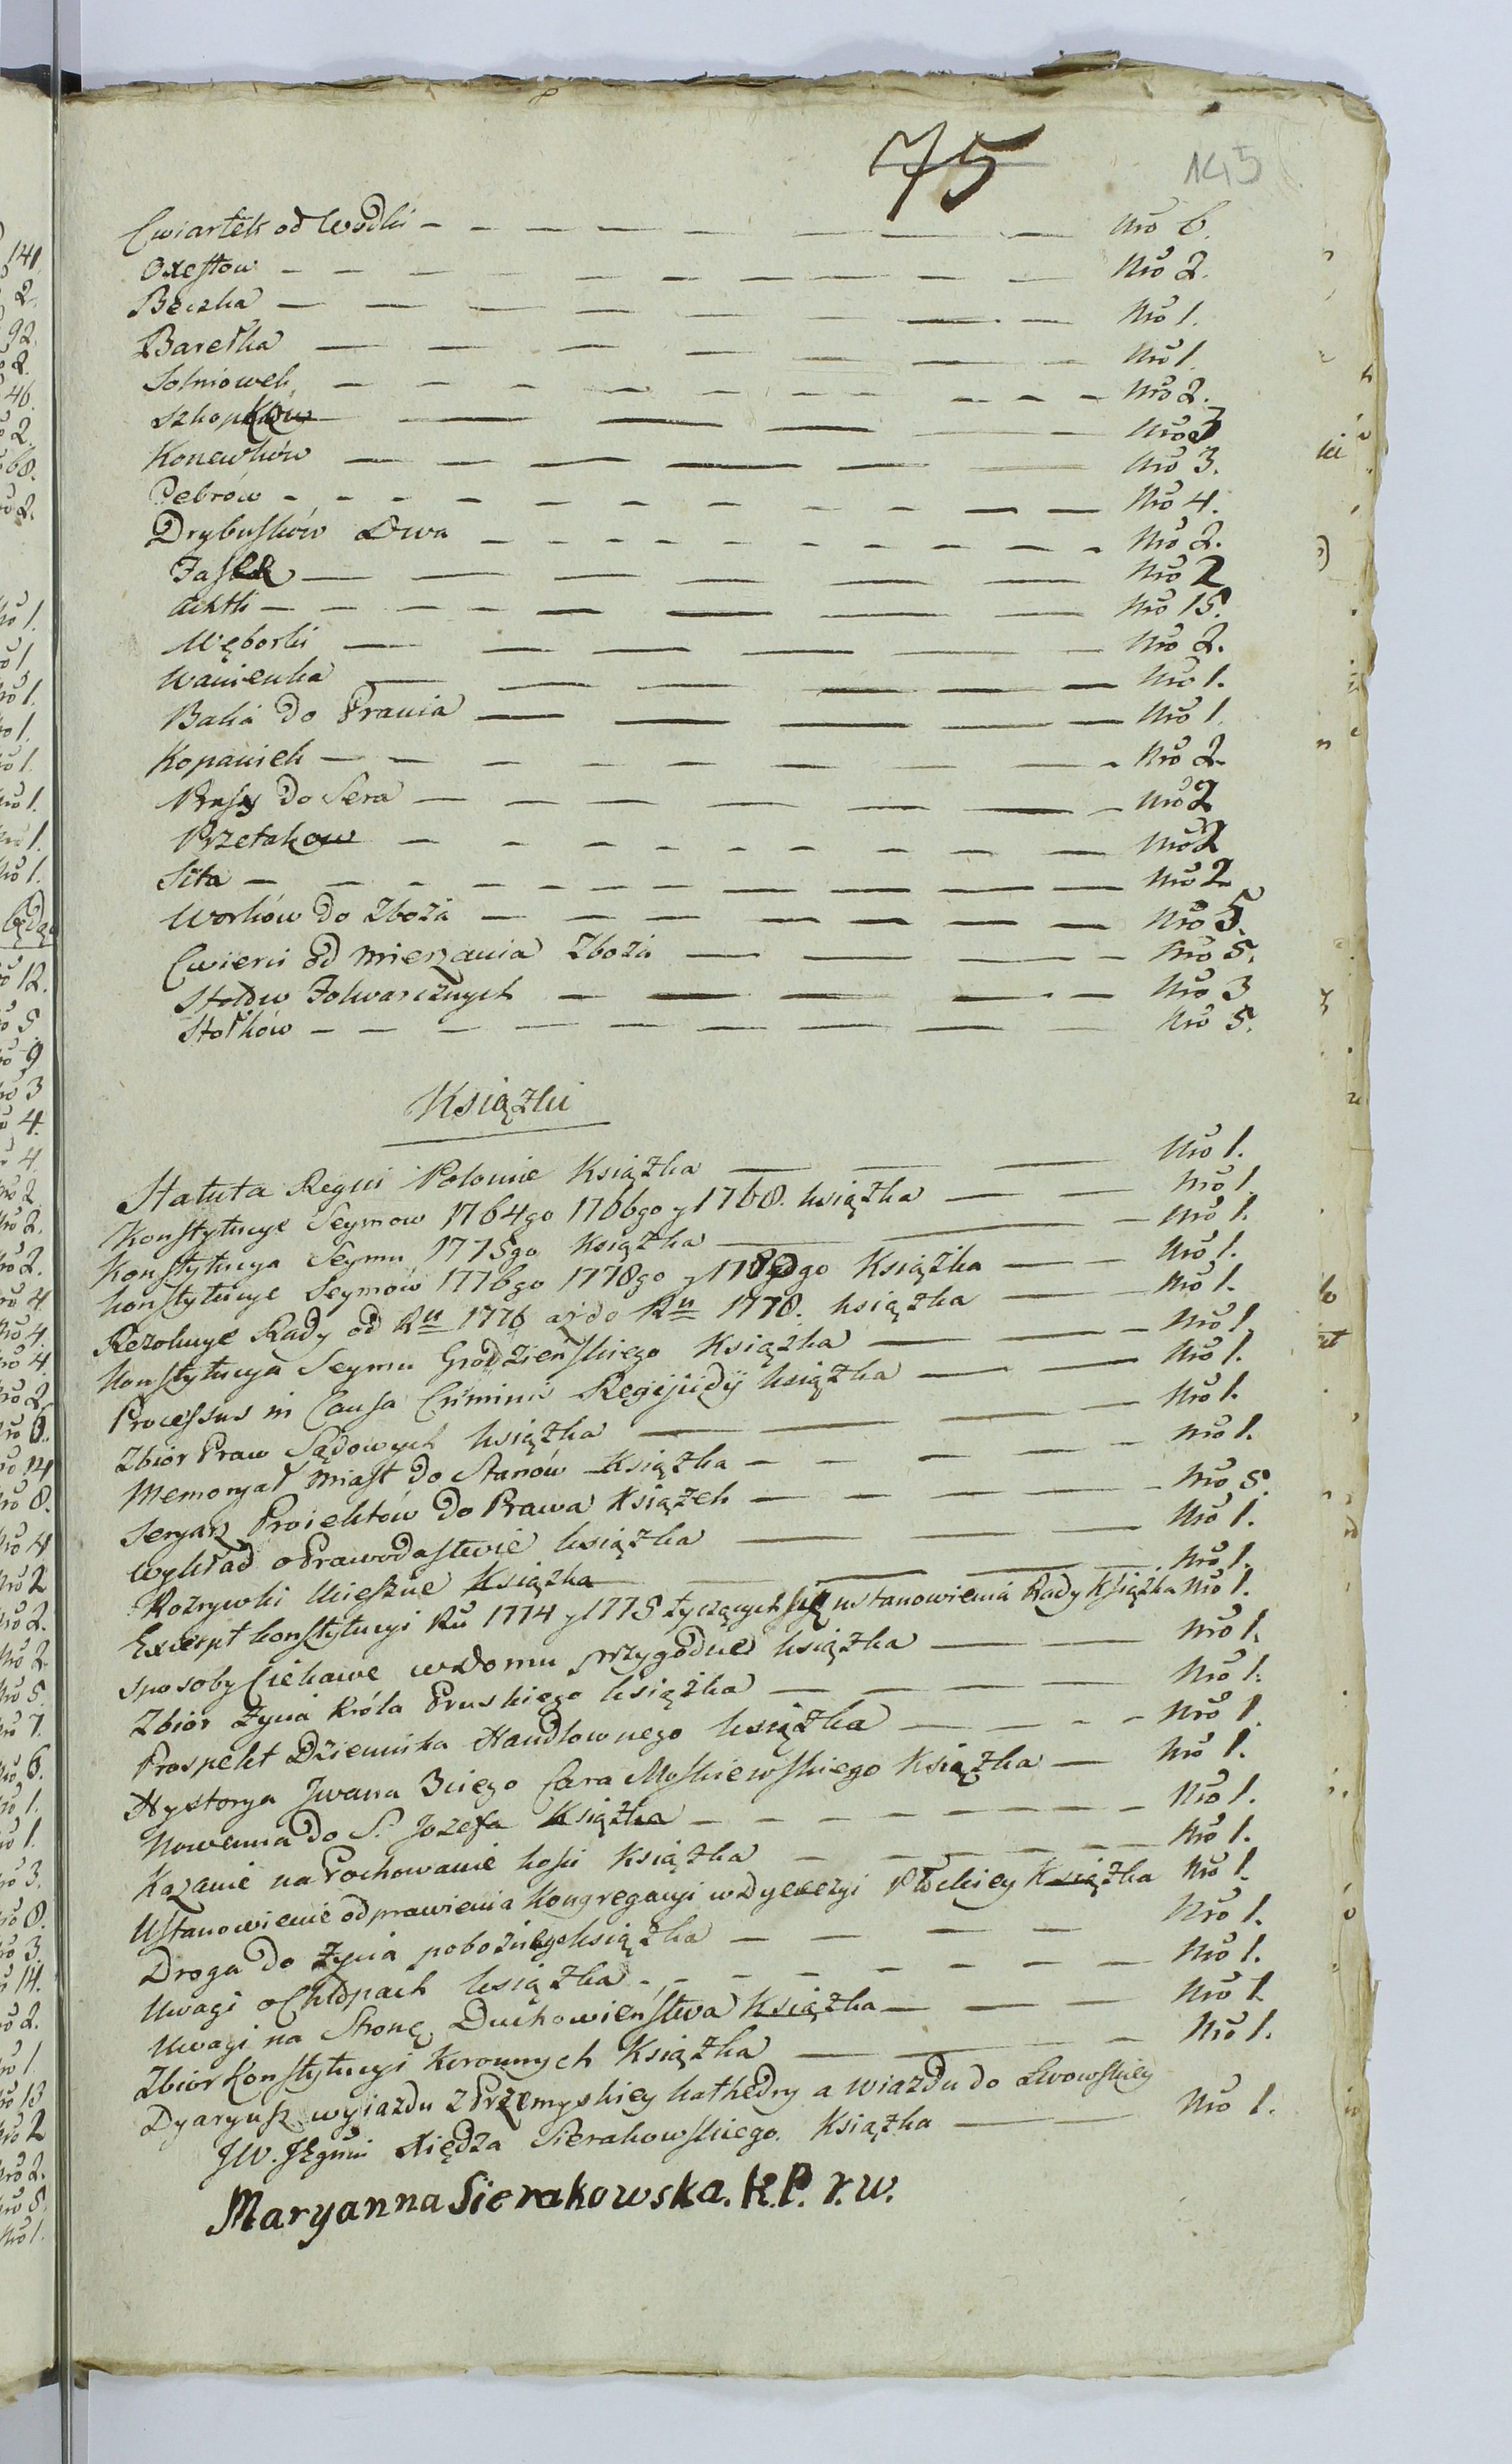 75
145
Cwiartek od Wodki — Nro 6.
Oxeftow — Nro 2.
Beczka — Nro 1.
Barełka — Nro 1.
Solniowek — Nro 2.
Szkopków — Nro 3
Konewków — Nro 3.
Cebrów — Nro 4.
Drybusków Dwa — Nro 2.
Faski — Nro 2
Achtli — Nro 15.
Węborki — Nro 2.
Wanienka — Nro 1.
Balia do Prania — Nro 1.
Kopaniek — Nro 2.
Prasy do Sera — Nro 2
Przetakow — Nro 2
Sita — Nro 2
Worków do Zboża — Nro 5.
Cwierci od mierzania Zboża — Nro 5.
Stołów Folwarcznych — Nro 3
Stołków — Nro 5.
Książki
Statuta Regni Polonie Książka — Nro 1.
Konstytucye Seymow 1764go 1766go y 1768. książka — Nro 1.
Konstytucya Seymu 1775go Książka — Nro 1.
konstytucye Seymów 1776go 1778go y 1780go Książka — Nro 1.
Rezolucye Rady od Ru 1776 aż do Ru 1778. książka — Nro 1.
Konstytucya Seymu Grodzieńskiego Książka — Nro 1.
Processus in Causa Criminis Regijcidij książka — Nro 1.
Zbior Praw Sądowych książka — Nro 1.
Memoryał Miast do Stanów Książka — Nro 1.
Seryarz Proiektów do Prawa Książek — Nro 5.
Wykład o Prawodastwie książka — Nro 1.
Rozrywki Ucieszne Książka — Nro 1.
Excerpt konstytucyi Ru 1774 y 1775 tyczących się ustanowienia Rady Książka Nro 1.
sposoby Ciekawe w domu przygodne książka — Nro 1.
Zbior Życia Króla Pruskiego książka — Nro 1.
Prospekt Dziennika Handlownego książka — Nro 1.
Hystorya Jwana 3ciego Cara Moskiewskiego Książka — Nro 1.
Nowenna do S. Jozefa Książka — Nro 1.
Kazanie na Pochowanie kości Książka — Nro 1.
Ustanowienie odprawienia Kongregacyi w Dyecezyi Płockiey Książka Nro 1.
Droga do Życia pobożnego książka — Nro 1.
Uwagi o Chłopach książka — Nro 1.
Uwagi na Stronę Duchowieństwa Książka — Nro 1.
Zbior Konstytucyi Koronnych Książka — Nro 1.
Dyaryusz wyiazdu z Przemyskiey kathedry a Wiazdu do Lwowskiey
JW. JEgmci Xiędza Sierakowskiego. Książka — Nro 1.
Maryanna Sierakowska. K. P. r. w.